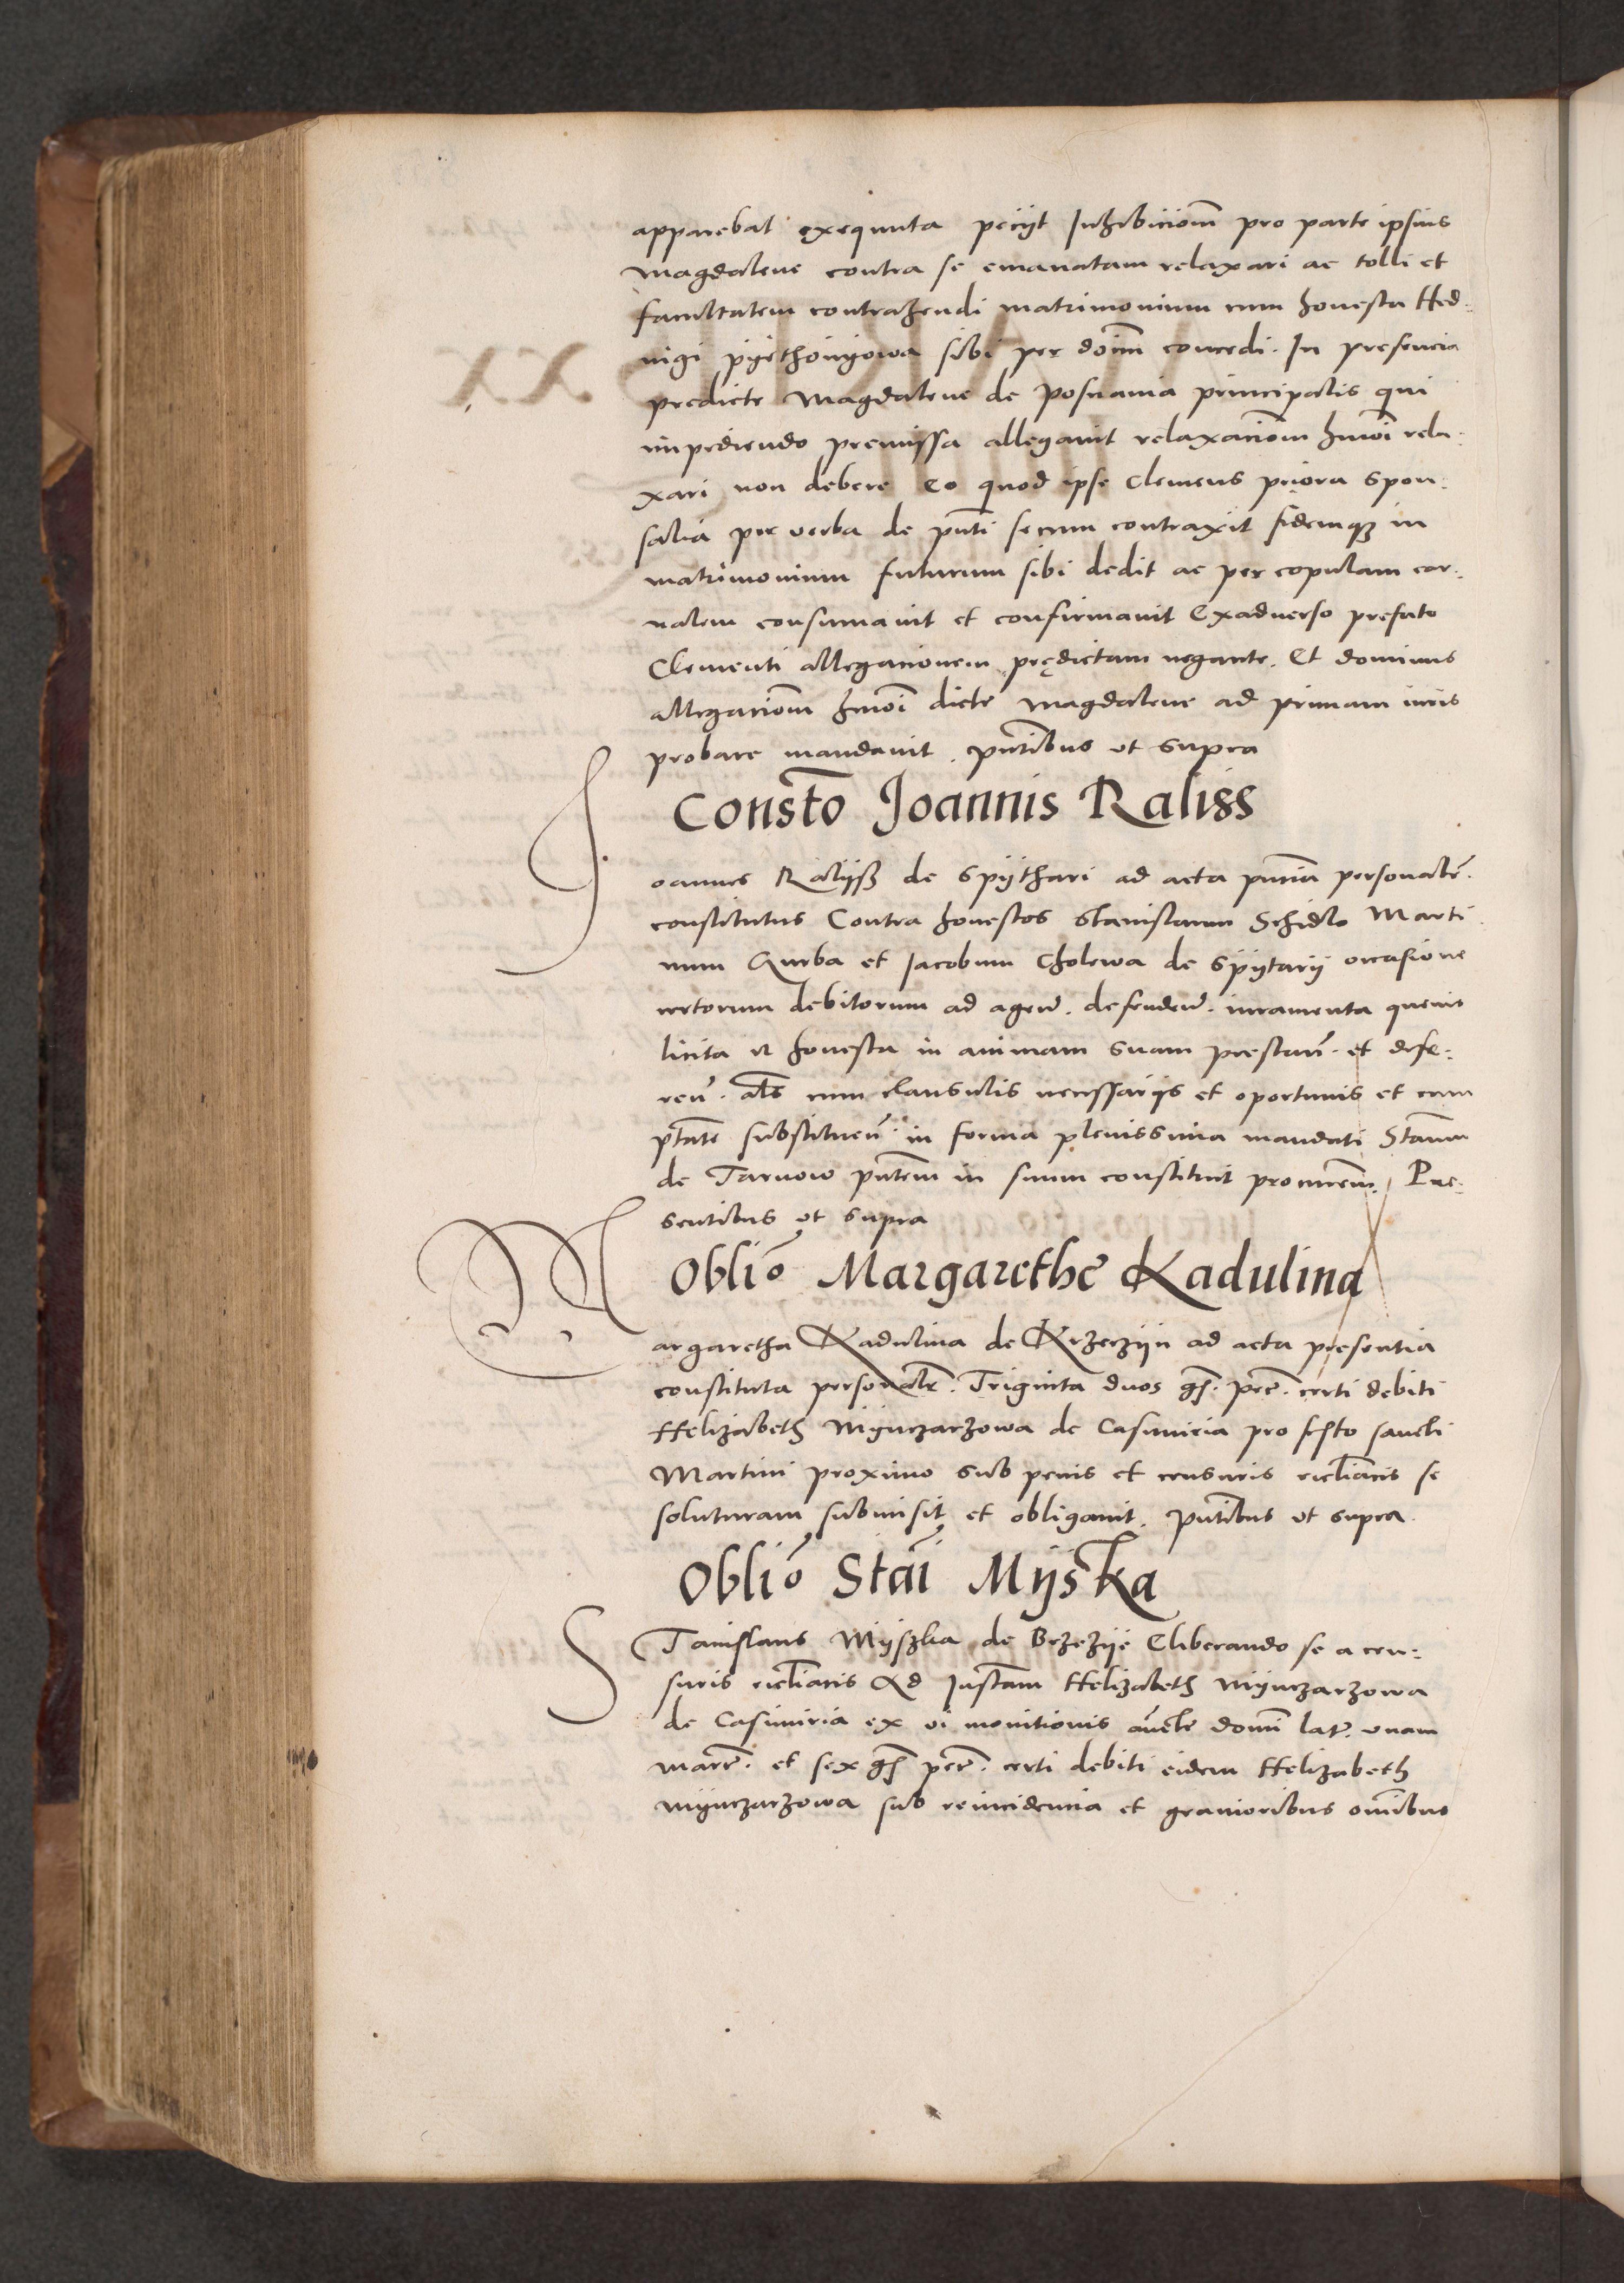 apparebat exequuta peciit Inhibiciom̄ pro parte ipsius
Magdalene contra se emanatam relaxari ac tolli et
facultatem contrahendi matrimonium cum honesta Hed:
vigi pyethonyowa sibi per dom̄ concedi. In presencia
predicte Magdalene de Posnania principalis qui
impediendo premissa allegavit relaxaciom̄ hmōi rela:
xari non debere Eo quod ipse Clemens priora spon:
salia per verba de pn̄ti secum contraxit fidemqȝ in
matrimonium futurum sibi dedit ac per copulam car:
nalem consumavit et confirmavit Exadverso prefato
Clementi allegacionem prędictam negante. Et dominus
allegaciom̄ hmōi dicte Magdalene ad primam iuris
probare mandavit. pn̄tibus ut supra
Constō Joannis Raliss
Joannes Ralijß de Spijthari ad acta pn̄cia personalr̄.
constitutus Contra honestos Stanislaum Schidlo Marti
num Gurba et Jacobum Cholewa de Spijtarij occasione
certorum debitorum ad agen̄. defenden̄. iuramenta quevis
licita et honesta in animam suam prestan̄. et defe:
ren̄. als̄ cum clausulis necessarijs et oportunis et cum
ptāte substituen̄. in forma plenissima mandati Stan̄um
de Tarnow pn̄tem in suum constituit procurem̄. Pre:
sentibus ut supra
Oblio̅ Margarethe Kadulina
Margaretha Kadulina de Krzerzijn ad acta presentia
constituta personalr̄. Triginta duos gs̄. pec̄. certi debiti
Helizabeth Mynczarzowa de Casimiria pro festo sancti
Martini proximo sub penis et censuris eccl̄iacis se
soluturam submisit et obligavit. Pn̄tibus ut supra.
Oblio̅ Stāi Mijska
STanislaus Mijszka de Brzezije Eliberando se a cen:
suris eccl̄iacis Ad Instam̄ Helizabeth Mijnczarzowa
de Casimiria ex vi monitionis auct̄e domi̅ lat̄. unam
marc̄. et sex gs̄ pec̄. certi debiti eidem Helizabeth
Mijnczarzowa sub reincidencia et gravioribus om̄ibus